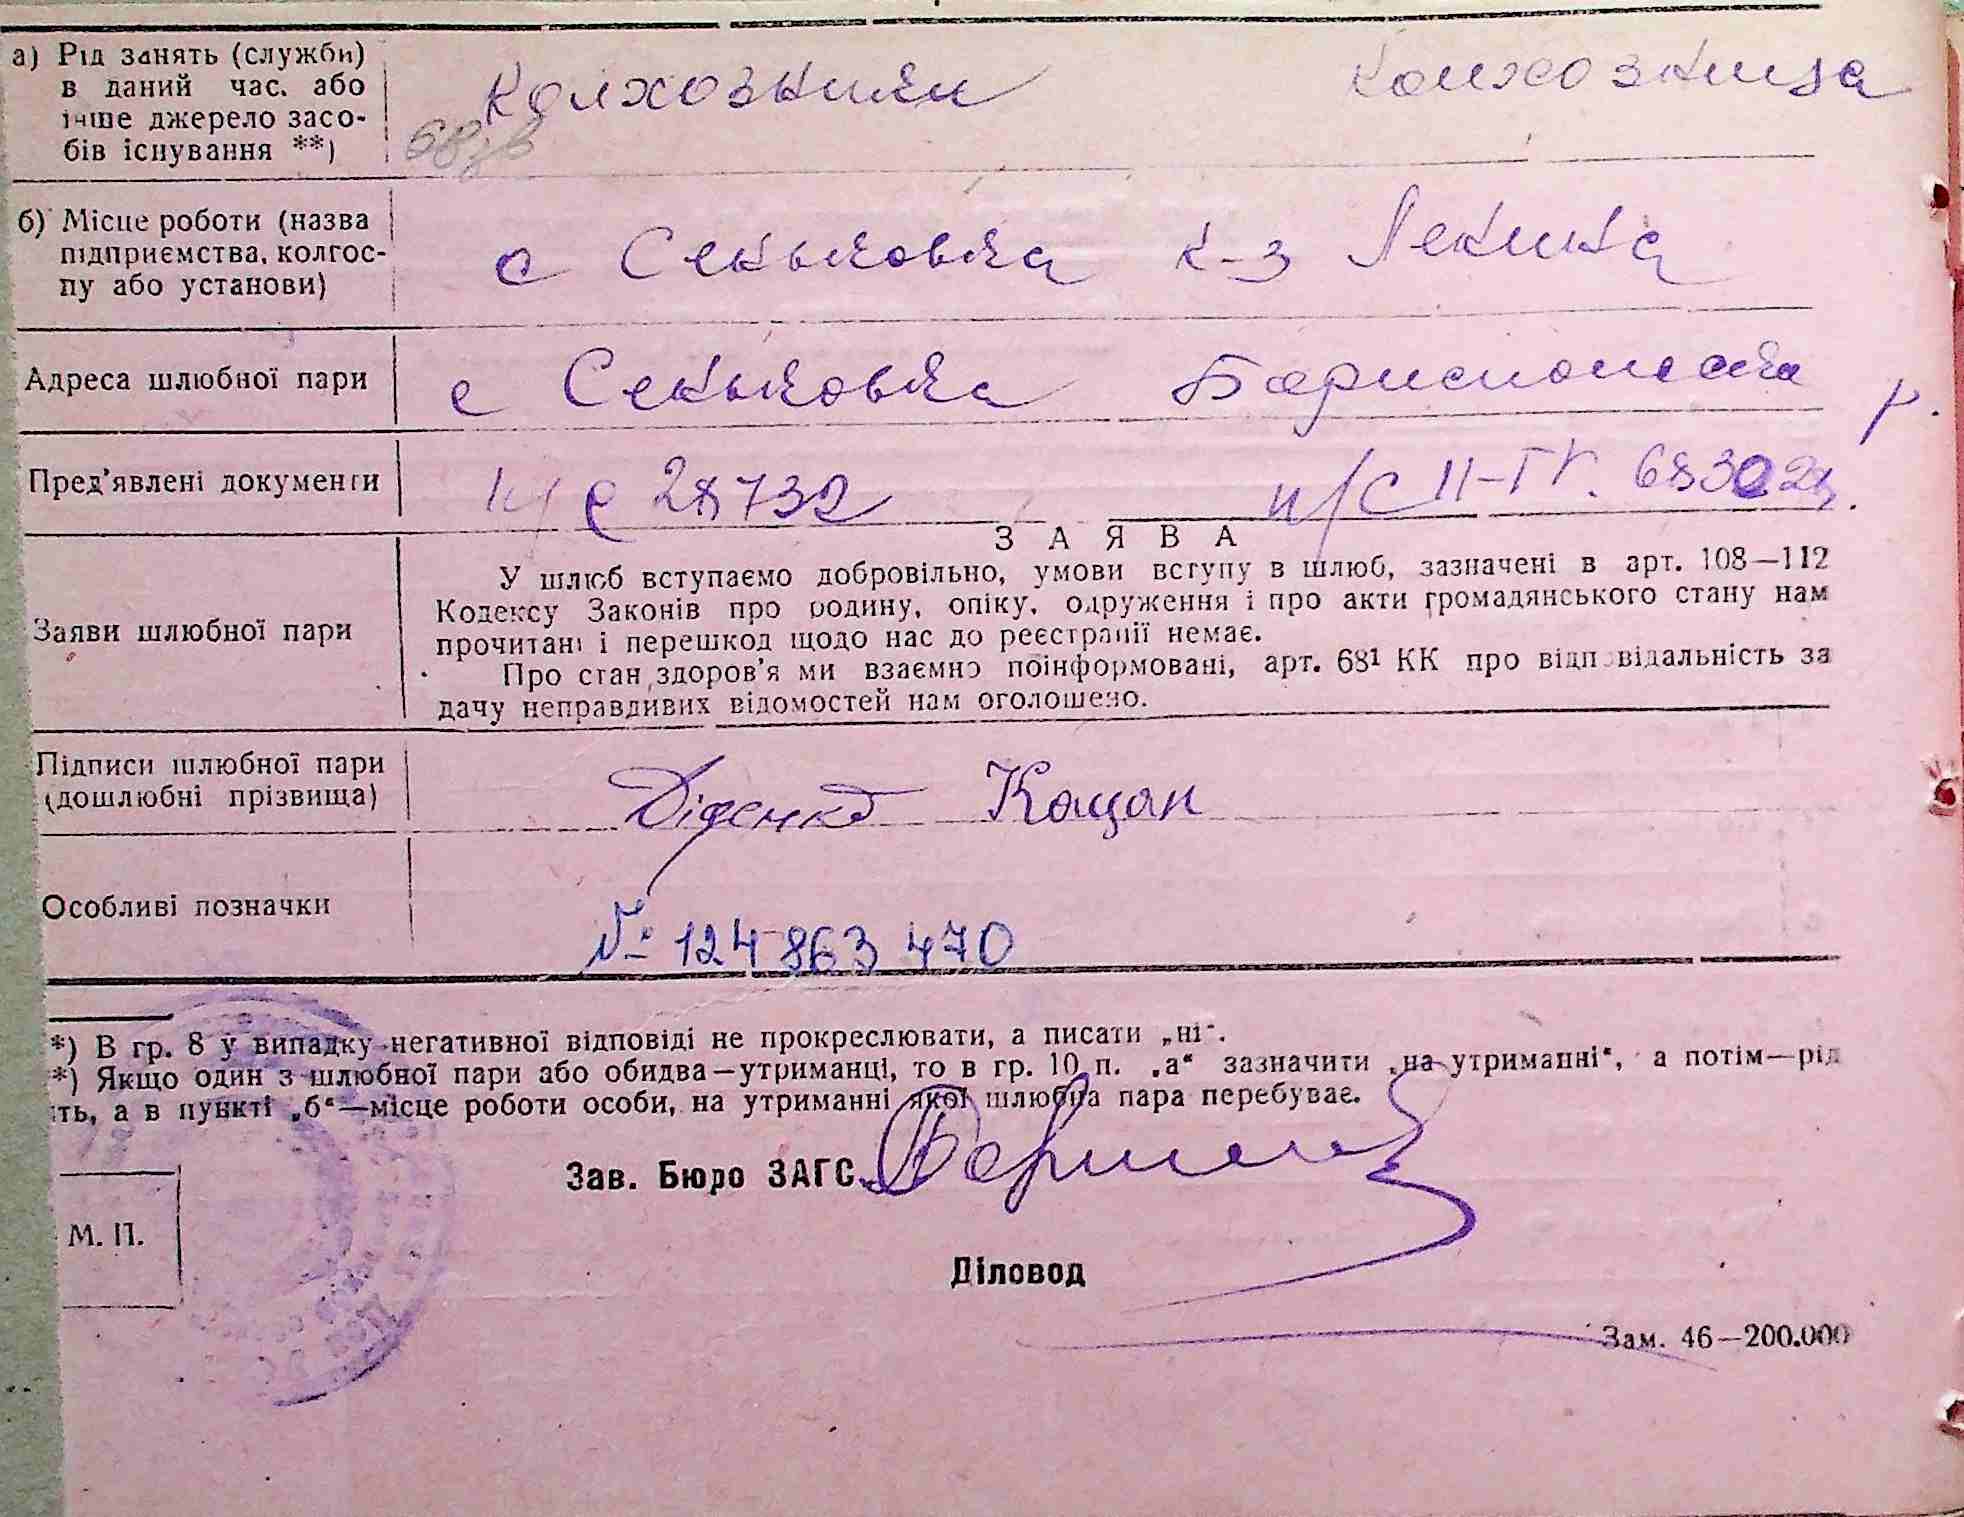 а) Рід занять (служби)
в даний час. або
інше джерело засо-
бів існування **)
Колхозник Колхозница
б) Місце роботи (назва
підприємства, колгос-
пу або установи)
с Сеньковка к-з Ленина
Адреса шлюбної пари
с Сеньковка Бориспольского р.
Пред'явлені документи
28732 п/с II-ГК.
З А Я В А
Заяви шлюбної пари
У шлюб вступаємо добровільно, умови вступу в шлюб, зазначені в арт. 108—112
Кодексу Законів про родину, опіку, одруження і про акти громадянського стану нам
прочитані і перешкод щодо нас до реєстрації немає.
Про стан здоров'я ми взаємно поінформовані, арт. 68¹ КК про відповідальність за
дачу неправдивих відомостей нам оголошено.
Підписи шлюбної пари
(дошлюбні прізвища)
Діденко Кацан
Особливі позначки
№ 124 863 470
*) В гр. 8 у випадку негативної відповіді не прокреслювати, а писати „ні".
*) Якщо один з шлюбної пари або обидва—утриманці, то в гр. 10 п. „а" зазначити „на утриманні", а потім—рід
ть, а в пункті „б"—місце роботи особи, на утриманні якої шлюбна пара перебуває.
Зав. Бюро ЗАГС
М. П.
Діловод
Зам. 46—200.000